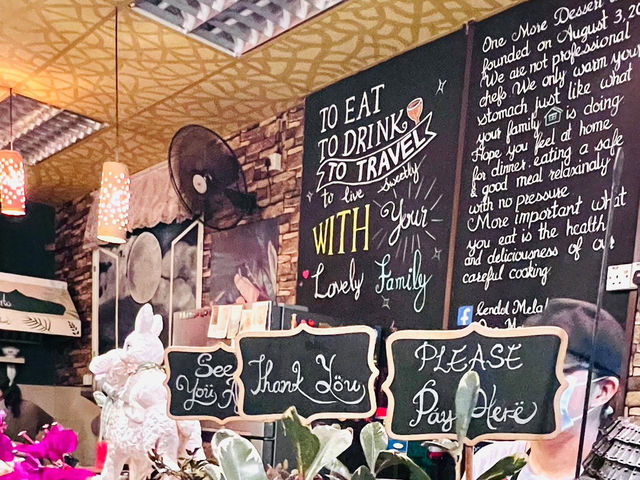 TO EAT
TO DRINK
TO TRAVEL
to live sweetly
WITH Your
Lovely Family
One More Dessert
founded on August 3, 20
We are not professional
chefs We only warm your
stomach just like what
your family is doing
Hope you feel at home
for dinner, eating a safe
& good meal relaxingly
with no pressure
More important what
you eat is the health
and deliciousness of our
careful cooking
Lendol Mela
One M
See
You A
Thank You
PLEASE
Pay Here